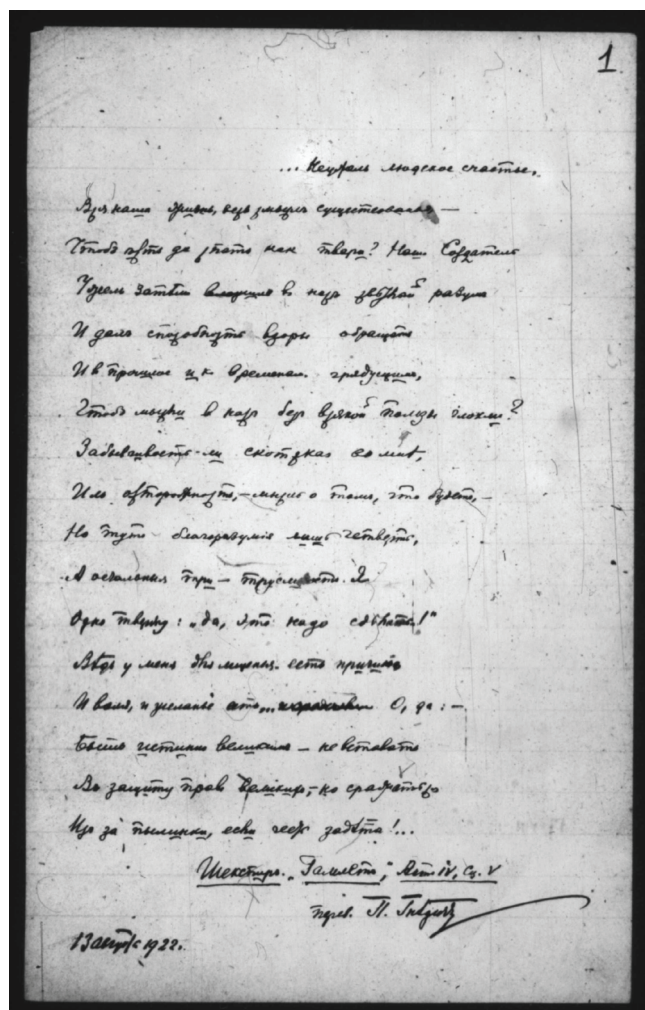 1
... Неужель людское счастье,
Вся наша жизнь, весь смыслъ существованья —
Чтобъ ѣсть да спать какъ твари? Нашъ Создатель
Ужель затѣмъ въ насъ свѣтлый разумъ
И далъ способность взоры обращать
И въ прошлое и къ временамъ грядущимъ,
Чтобъ мысли въ насъ безъ всякой пользы глохли?
Забывчивость-ли скотская во мнѣ,
Иль осторожность, — мысль о томъ, что будетъ, —
Но тутъ благоразумія лишь четверть,
А остальныя три — трусливость. Я
Одно твержу: „да, это надо сдѣлать!"
Вѣдь у меня для мщенья есть причины
И воля, и желанье есть... О, да: —
Быть истинно великимъ — не вставать
Въ защиту правъ великихъ, — но сражаться
Изъ за пылинки, если честь задѣта!...
Шекспиръ. „Гамлетъ", Актъ IV, Сц. V
перев. П. Гнѣдичъ
13 августа 1922.